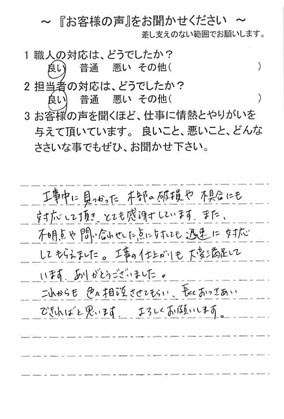 ～『お客様の声』をお聞かせください～
差し支えのない範囲でお願いします。
1 職人の対応は、どうでしたか？
良い 普通 悪い その他( )
2 担当者の対応は、どうでしたか？
良い 普通 悪い その他( )
3 お客様の声を聞くほど、仕事に情熱とやりがいを
与えて頂いています。 良いこと、悪いこと、どんな
ささいな事でもぜひ、お聞かせ下さい。
工事中に見つかった 木部の破損や 不具合にも
対応して頂き、とても感謝しています。また、
不明点や問い合わせした点に対しても 迅速に対応
してもらえました。工事の仕上がりも 大変満足して
います。ありがとうございました。
これからも 色々相談させてもらい、長くおつきあい
できればと思います。 よろしくお願いします。